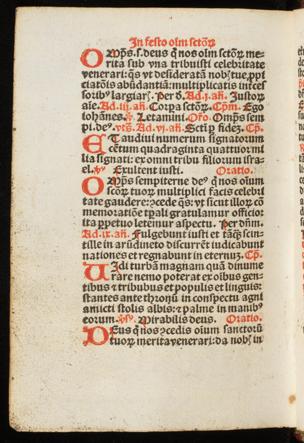 In festo oim sctoꝝ
Omps. s. deus q nos oim sctoꝝ me-
rita sub vna tribuisti celebritate
venerari: qs vt desideratā nob tue ppi
ciatiōis abūdantiā: multiplicatis ītces
soribꝰ largiaꝝ. Per d. Ad .i. añ. Justoꝝ
aīe. Ad .iii. añ. Corpa sctoꝝ. Cplm. Ego
Iohānes. ℣. Letamini. Oro. Omps sem
pi. de?. vts. Ad .vi. añ. Sctiꝰ fides. Cp.
Et audiui numerum signatorum
centum quadraginta quattuor mi
lia signati: ex omni tribu filiorum isra-
el. ℣. Exultent iusti. Oratio.
Omps sempiterne de? q nos oim
sctoꝝ tuoꝝ multiplici facis celebri
tate gaudere: ꝯcede qs: vt sicut illoꝝ cō
memoratiōe tpali gratulamur officio:
ita ppetuo letemur aspectu. Per dnm.
Ad .ix. añ. Fulgebunt iusti et tāqꝫ scin-
tille in arūdineto discurrēt iudicabunt
nationes et regnabunt in eternuꝫ. Cp.
Uidi turbā magnam quā dinume
rare nemo poterat ex oibus gen-
tibus ⁊ tribubus et populis et linguis:
stantes ante thronū in conspectu agni
amicti stolis albis: ⁊ palme in manibꝰ
eorum. ℣. Mirabilis deus. Oratio.
Deus q nos ꝯcedis oium sanctorū
tuoꝝ merita venerari: da nobꝫ in